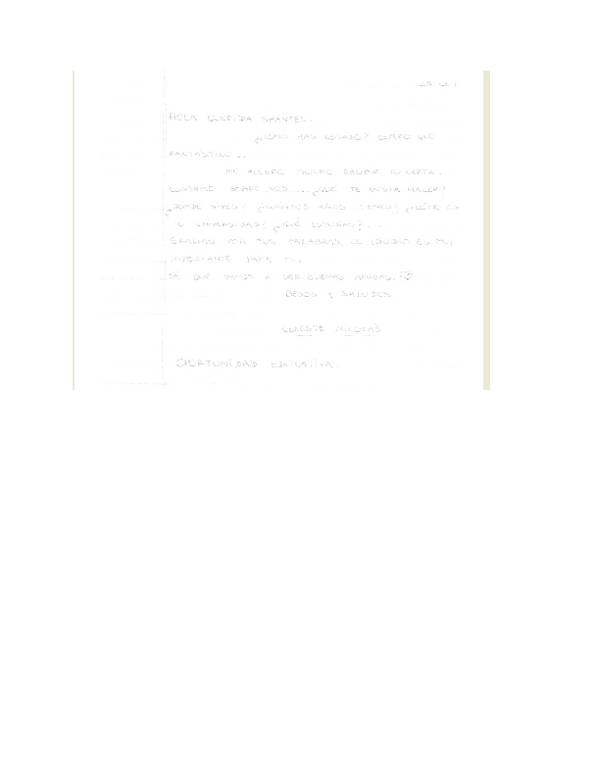 HOLA QUERIDA SHANTEL.
¿CÓMO HAS ESTADO? ESPERO QUE
FANTÁSTICO...
ME ALEGRÓ MUCHO RECIBIR TU CARTA.
CONTAME SOBRE VOS... ¿QUÉ TE GUSTA HACER?
¿DÓNDE VIVÍS? ¿CUÁNTOS AÑOS TENÉS?
UNIVERSIDAD? ¿QUÉ ESTUDIAS?...
GRACIAS POR TUS PALABRAS, EL ESTUDIO ES MUY
IMPORTANTE PARA MI.
SÉ QUE VAMOS A SER BUENAS AMIGAS.
BESOS Y SALUDOS
CELESTE
OPORTUNIDAD EDUCATIVA.